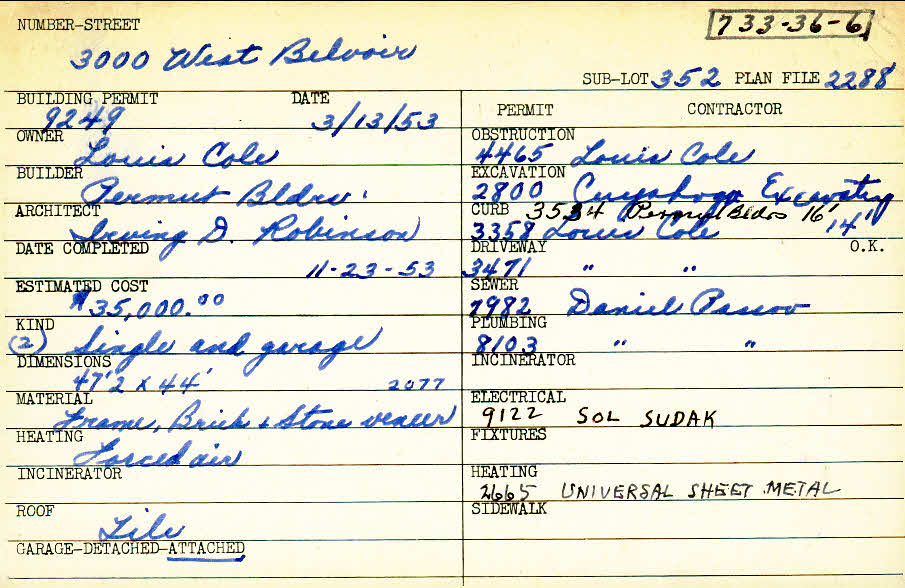 NUMBER-STREET
733-36-6
3000 West Belvoir
SUB-LOT 352 PLAN FILE 2288
BUILDING PERMIT DATE
9249 3/13/53
OWNER
Louis Cole
BUILDER
Permut Bldrs.
ARCHITECT
Irving D. Robinson
DATE COMPLETED
11-23-53
ESTIMATED COST
$35,000.00
KIND
(2) Single and garage
DIMENSIONS
47'2 x 44' 2077
MATERIAL
Frame, Brick + Stone veneer
HEATING
Forced air
INCINERATOR
ROOF
Tile
GARAGE-DETACHED-ATTACHED
PERMIT CONTRACTOR
OBSTRUCTION
4465 Louis Cole
EXCAVATION
2800 Cuyahoga Excavating
CURB 3534 Permut Bldrs 16'
3358 Louis Cole 14'
DRIVEWAY O.K.
3471 " "
SEWER
7982 Daniel Passov
PLUMBING
8103 " "
INCINERATOR
ELECTRICAL
9122 SOL SUDAK
FIXTURES
HEATING
2665 UNIVERSAL SHEET METAL
SIDEWALK